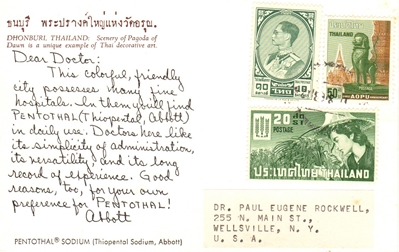 ธนบุรี พระปรางค์ใหญ่แห่งวัดอรุณ.
DHONBURI, THAILAND: Scenery of Pagoda of
Dawn is a unique example of Thai decorative art.
Dear Doctor:
This colorful, friendly
city possesses many fine
hospitals. In them you'll find
PENTOTHAL (Thiopental, Abbott)
in daily use. Doctors here like
its simplicity of administration,
its versatility and its long
record of experience. Good
reasons, too, for your own
preference for PENTOTHAL!
Abbott
PENTOTHAL® SODIUM (Thiopental Sodium, Abbott)
THAILAND
50
AOPU
20
POSTAGE
ประเทศไทย THAILAND
DR. PAUL EUGENE ROCKWELL,
255 N. MAIN ST.,
WELLSVILLE, N. Y.
U. S. A.